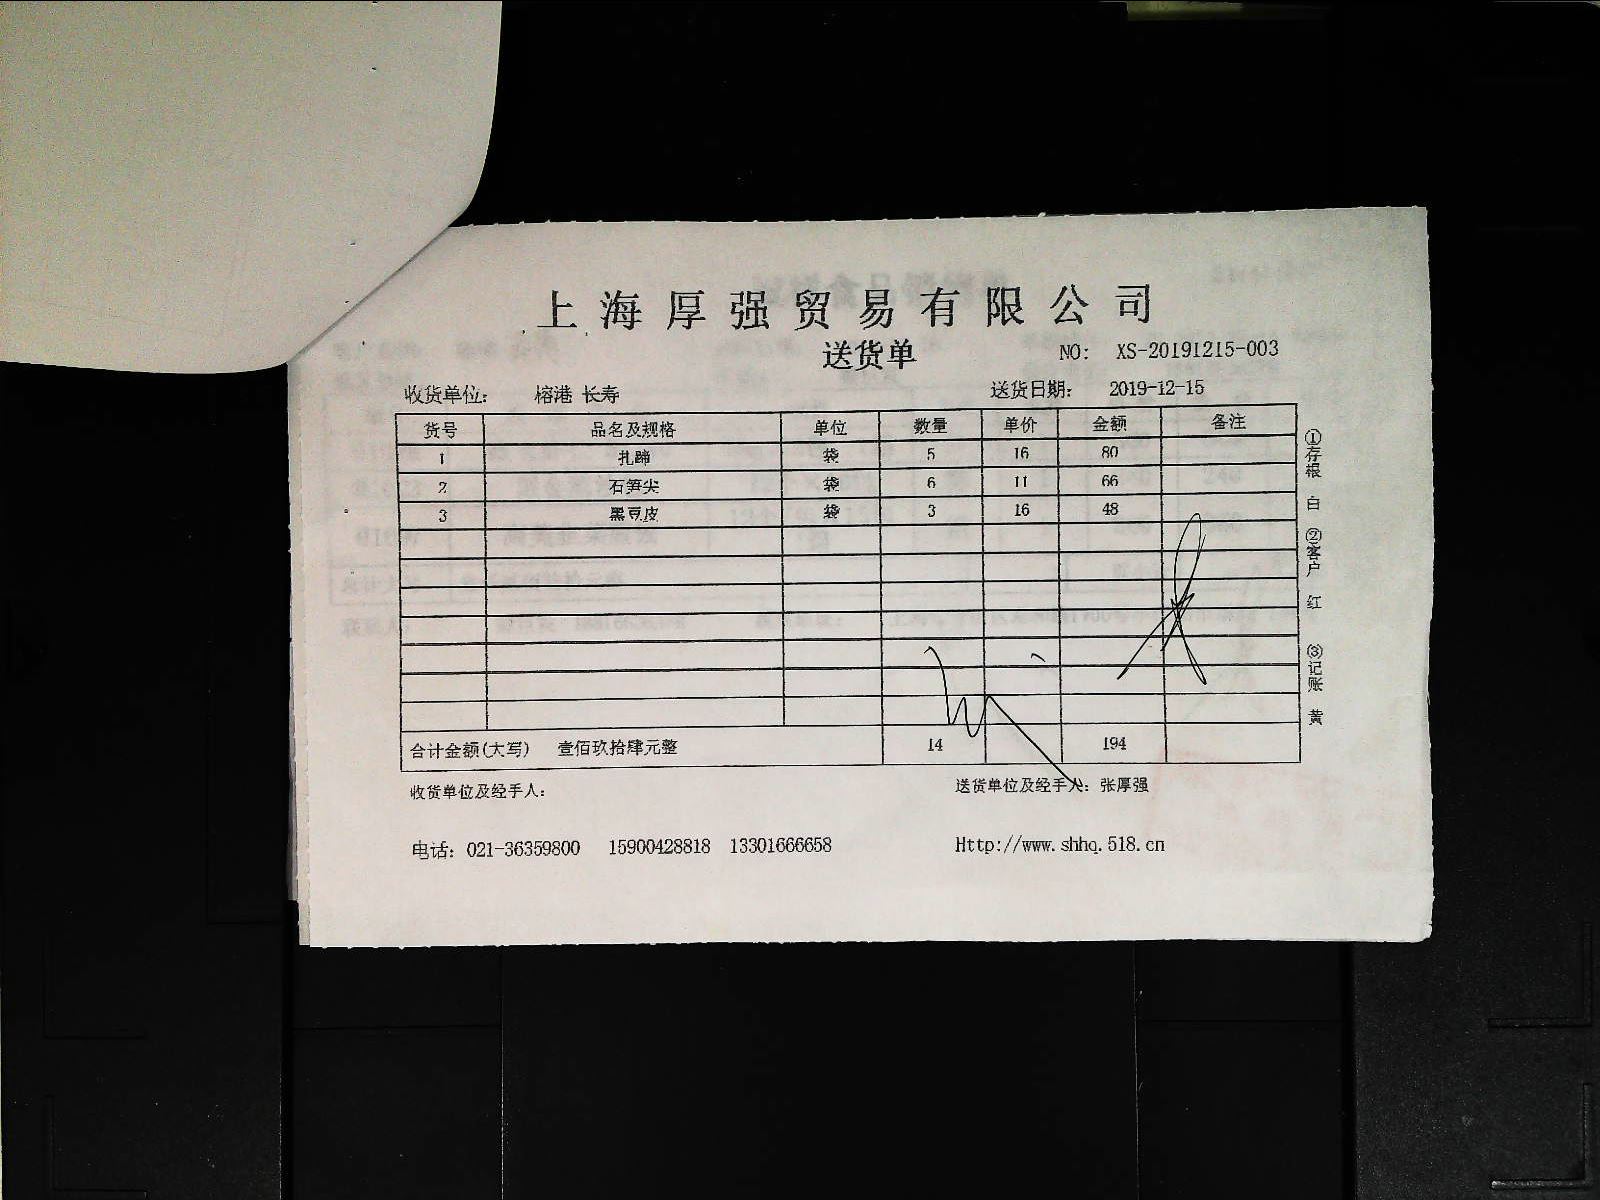 上海厚强贸易有限公司
送货单 NO: XS-20191215-003
收货单位: 榕港 长寿 送货日期: 2019-12-15
货号 品名及规格 单位 数量 单价 金额 备注
1 扎蹄 袋 5 16 80
2 石笋尖 袋 6 11 66
3 黑豆皮 袋 3 16 48
合计金额(大写) 壹佰玖拾肆元整 14 194
收货单位及经手人: 送货单位及经手人: 张厚强
电话: 021-36359800 15900428818 13301666658 Http://www.shhq.518.cn
①存根 白 ②客户 红 ③记账 黄